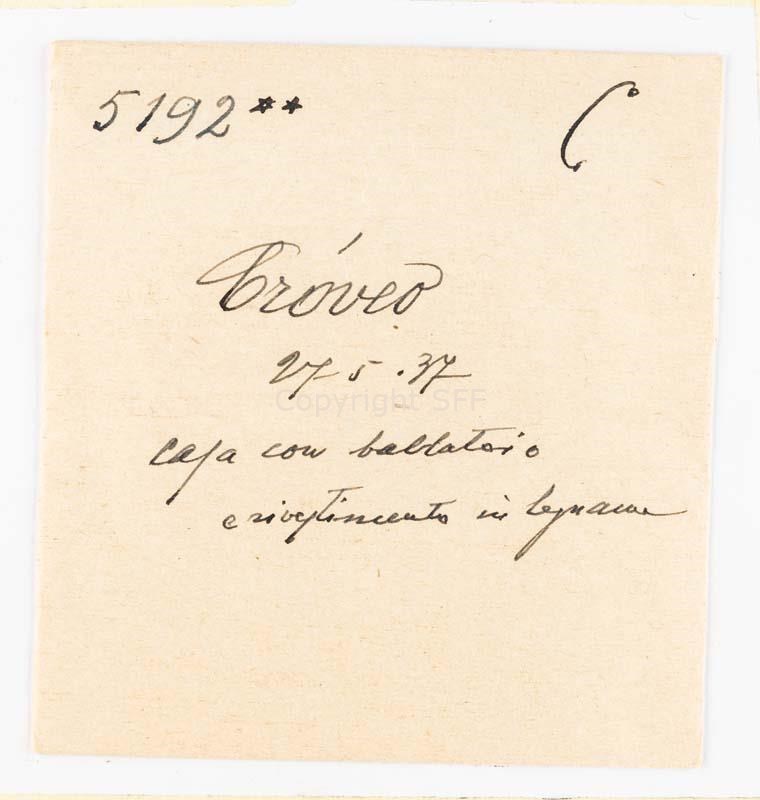 5192** C
Tróveo
27 5.37
Copyright SFF
casa con ballatoio
e rivestimento in legname